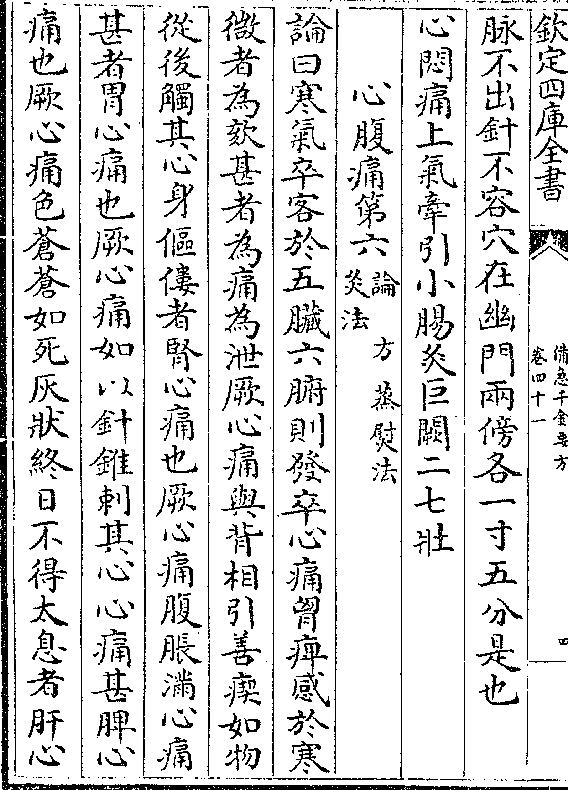 欽定四庫全書
備急千金要方
卷四十一
四
脉不出針不容穴在幽門兩傍各一寸五分是也
心悶痛上氣牽引小腸灸巨闕二七壯
心腹痛第六論 方 蒸熨法
灸法
論曰寒氣卒客於五臟六腑則發卒心痛胷痺感於寒
微者為欬甚者為痛為泄厥心痛與背相引善瘈如物
從後觸其心身傴僂者腎心痛也厥心痛腹脹滿心痛
甚者胃心痛也厥心痛如以針錐刺其心心痛甚脾心
痛也厥心痛色蒼蒼如死灰狀終日不得太息者肝心